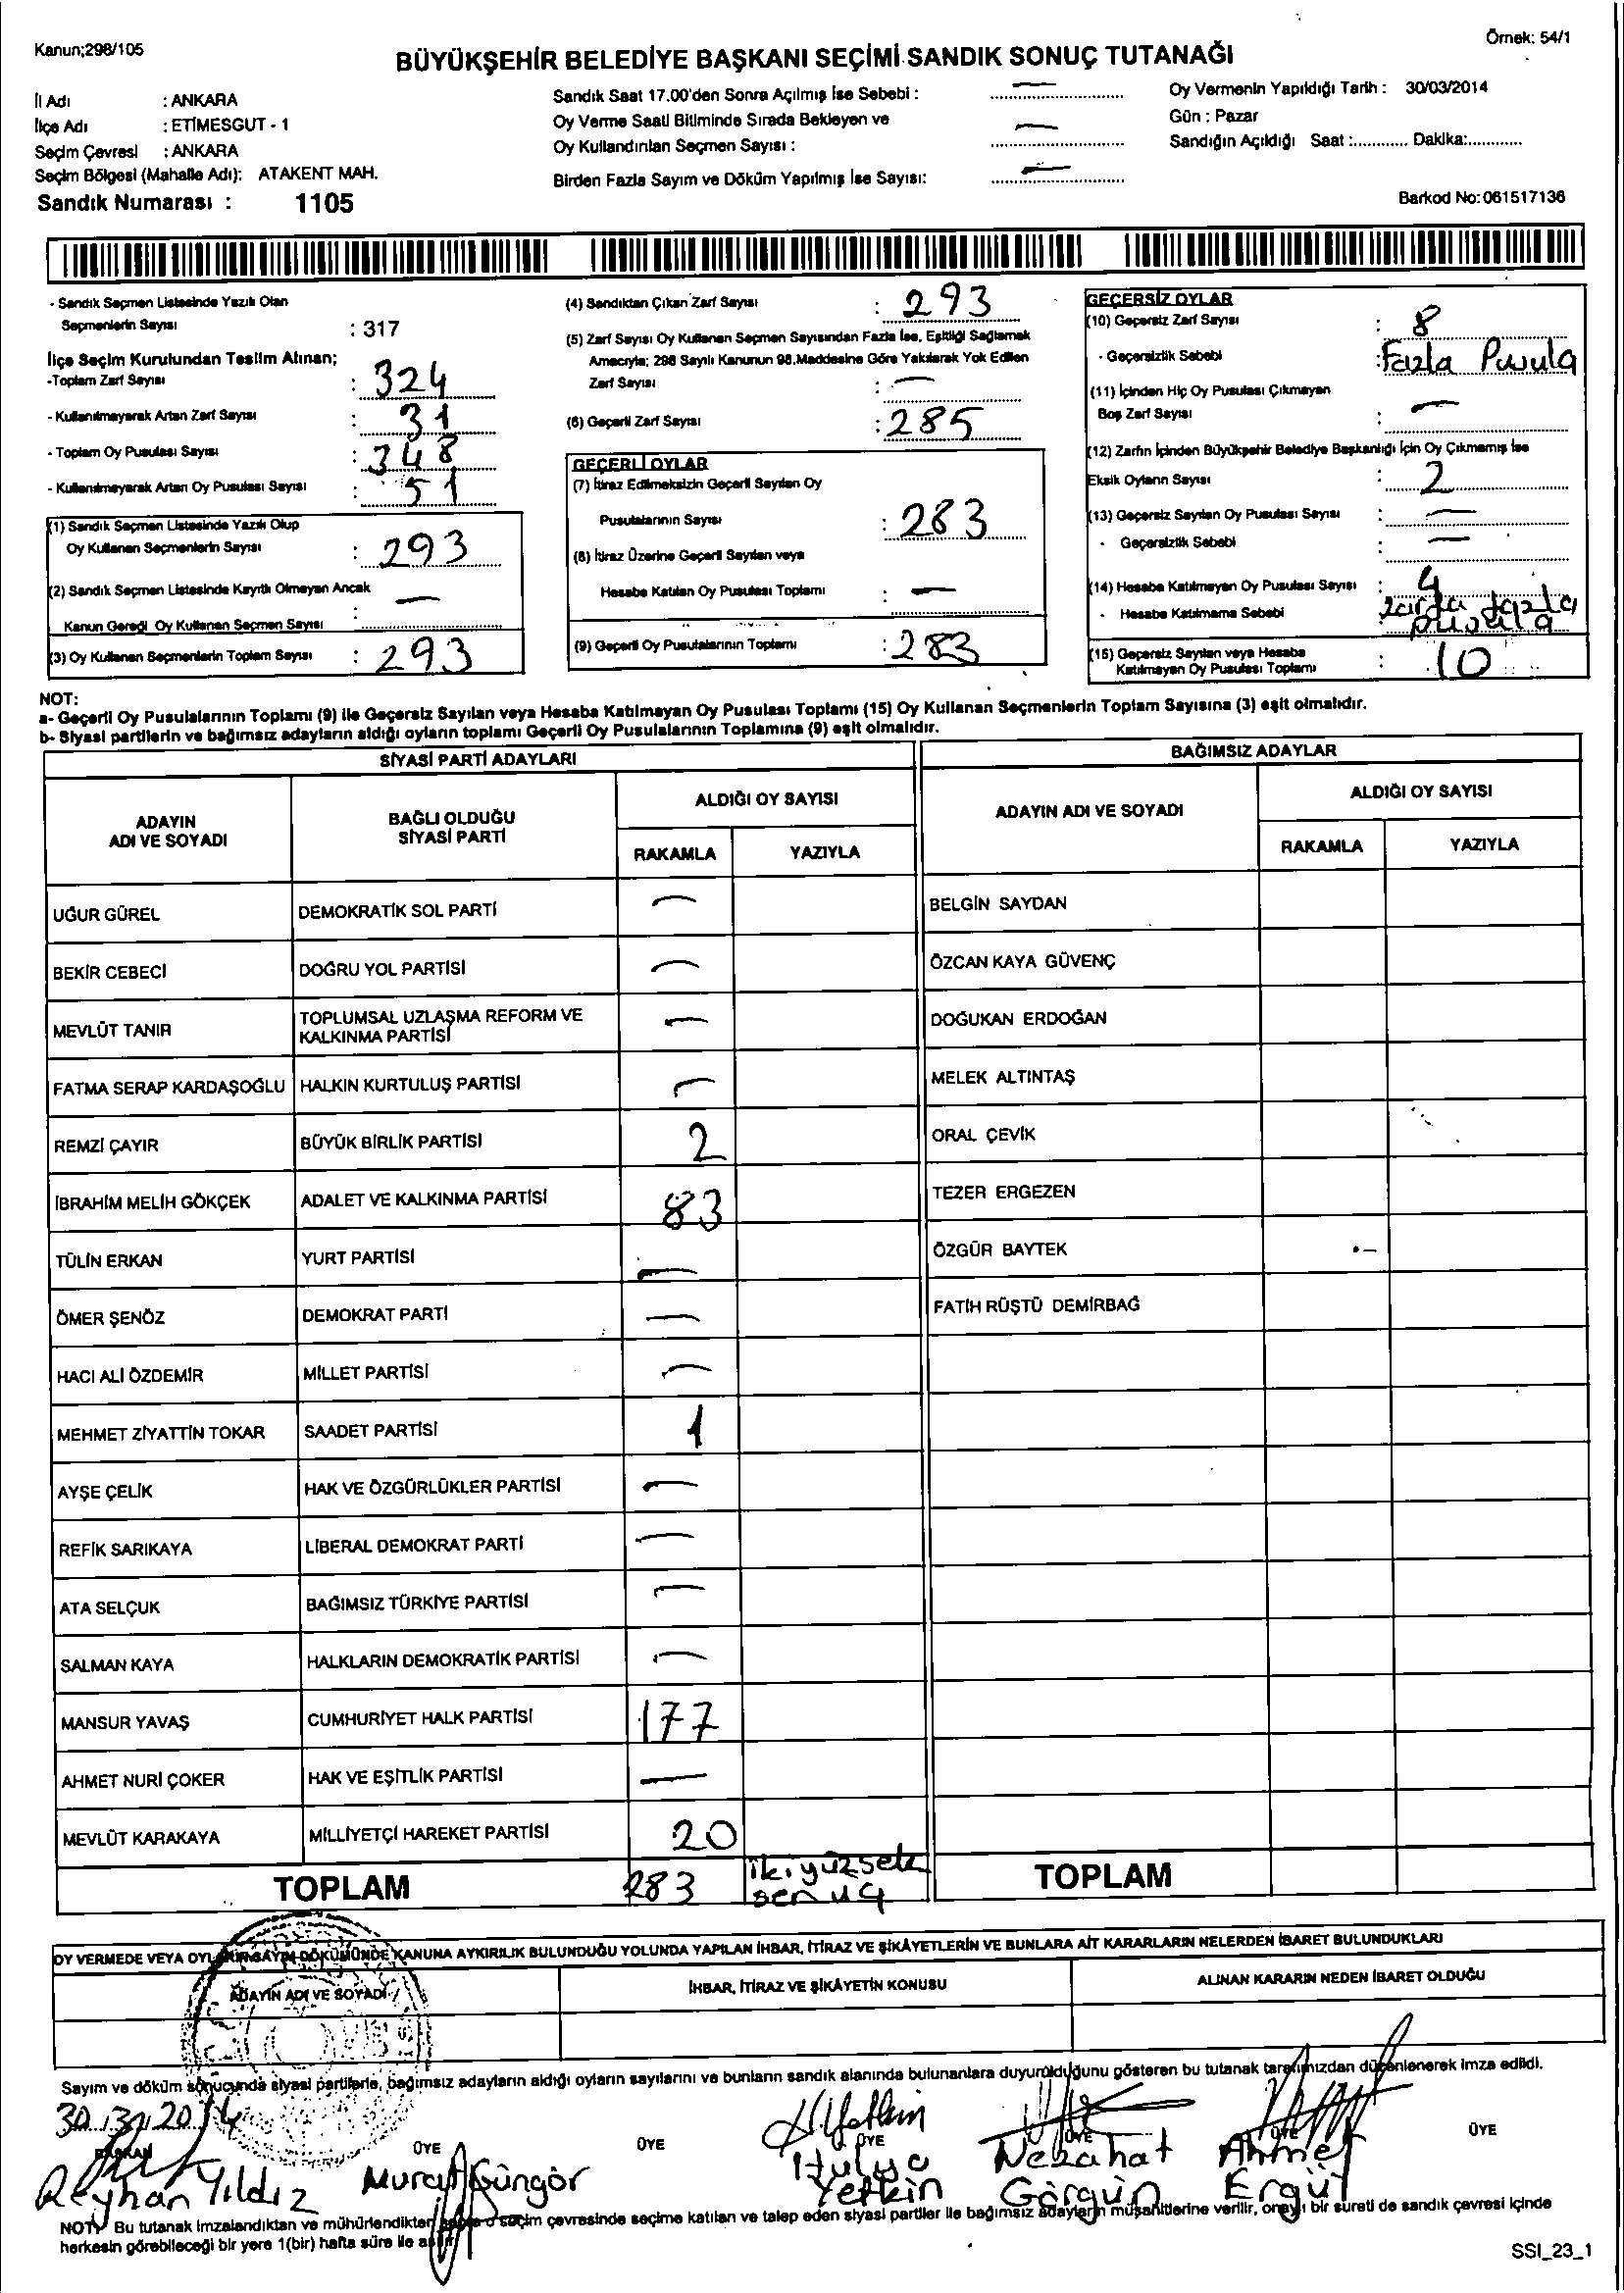 Kanun;298/105
Örnek: 54/1
BÜYÜKŞEHİR BELEDİYE BAŞKANI SEÇİMİ SANDIK SONUÇ TUTANAĞI
İl Adı : ANKARA
İlçe Adı : ETİMESGUT - 1
Seçim Çevresi : ANKARA
Seçim Bölgesi (Mahalle Adı): ATAKENT MAH.
Sandık Numarası : 1105
Sandık Saat 17.00'den Sonra Açılmış İse Sebebi : —
Oy Verme Saati Bitiminde Sırada Bekleyen ve
Oy Kullandırılan Seçmen Sayısı : —
Birden Fazla Sayım ve Döküm Yapılmış İse Sayısı: —
Oy Vermenin Yapıldığı Tarih : 30/03/2014
Gün : Pazar
Sandığın Açıldığı Saat :............ Dakika:............
Barkod No: 061517136
- Sandık Seçmen Listesinde Yazılı Olan
Seçmenlerin Sayısı : 317
İlçe Seçim Kurulundan Teslim Alınan;
-Toplam Zarf Sayısı : 324
- Kullanılmayarak Artan Zarf Sayısı : 31
- Toplam Oy Pusulası Sayısı : 348
- Kullanılmayarak Artan Oy Pusulası Sayısı : 51
(1) Sandık Seçmen Listesinde Yazılı Olup
Oy Kullanan Seçmenlerin Sayısı : 293
(2) Sandık Seçmen Listesinde Kayıtlı Olmayan Ancak
Kanun Gereği Oy Kullanan Seçmen Sayısı : —
(3) Oy Kullanan Seçmenlerin Toplam Sayısı : 293
(4) Sandıktan Çıkan Zarf Sayısı : 293
(5) Zarf Sayısı Oy Kullanan Seçmen Sayısından Fazla İse, Eşitliği Sağlamak
Amacıyla; 298 Sayılı Kanunun 98.Maddesine Göre Yakılarak Yok Edilen
Zarf Sayısı : —
(6) Geçerli Zarf Sayısı : 285
GEÇERLİ OYLAR
(7) İtiraz Edilmeksizin Geçerli Sayılan Oy
Pusulalarının Sayısı : 283
(8) İtiraz Üzerine Geçerli Sayılan veya
Hesaba Katılan Oy Pusulası Toplamı : —
(9) Geçerli Oy Pusulalarının Toplamı : 283
GEÇERSİZ OYLAR
(10) Geçersiz Zarf Sayısı : 8
- Geçersizlik Sebebi : Fazla Pusula
(11) İçinden Hiç Oy Pusulası Çıkmayan
Boş Zarf Sayısı : —
(12) Zarfın İçinden Büyükşehir Belediye Başkanlığı İçin Oy Çıkmamış İse
Eksik Oyların Sayısı : 2
(13) Geçersiz Sayılan Oy Pusulası Sayısı : —
- Geçersizlik Sebebi : —
(14) Hesaba Katılmayan Oy Pusulası Sayısı : 4
- Hesaba Katılmama Sebebi : zarfta fazla
pusula
(15) Geçersiz Sayılan veya Hesaba
Katılmayan Oy Pusulası Toplamı : 10
NOT:
a- Geçerli Oy Pusulalarının Toplamı (9) ile Geçersiz Sayılan veya Hesaba Katılmayan Oy Pusulası Toplamı (15) Oy Kullanan Seçmenlerin Toplam Sayısına (3) eşit olmalıdır.
b- Siyasi partilerin ve bağımsız adayların aldığı oyların toplamı Geçerli Oy Pusulalarının Toplamına (9) eşit olmalıdır.
SİYASİ PARTİ ADAYLARI
BAĞIMSIZ ADAYLAR
ADAYIN
ADI VE SOYADI
BAĞLI OLDUĞU
SİYASİ PARTİ
ALDIĞI OY SAYISI
RAKAMLA YAZIYLA
ADAYIN ADI VE SOYADI
ALDIĞI OY SAYISI
RAKAMLA YAZIYLA
UĞUR GÜREL DEMOKRATİK SOL PARTİ — BELGİN SAYDAN
BEKİR CEBECİ DOĞRU YOL PARTİSİ — ÖZCAN KAYA GÜVENÇ
MEVLÜT TANIR TOPLUMSAL UZLAŞMA REFORM VE
KALKINMA PARTİSİ — DOĞUKAN ERDOĞAN
FATMA SERAP KARDAŞOĞLU HALKIN KURTULUŞ PARTİSİ — MELEK ALTINTAŞ
REMZİ ÇAYIR BÜYÜK BİRLİK PARTİSİ 2 ORAL ÇEVİK
İBRAHİM MELİH GÖKÇEK ADALET VE KALKINMA PARTİSİ 83 TEZER ERGEZEN
TÜLİN ERKAN YURT PARTİSİ — ÖZGÜR BAYTEK
ÖMER ŞENÖZ DEMOKRAT PARTİ — FATİH RÜŞTÜ DEMİRBAĞ
HACI ALİ ÖZDEMİR MİLLET PARTİSİ —
MEHMET ZİYATTİN TOKAR SAADET PARTİSİ 1
AYŞE ÇELİK HAK VE ÖZGÜRLÜKLER PARTİSİ —
REFİK SARIKAYA LİBERAL DEMOKRAT PARTİ —
ATA SELÇUK BAĞIMSIZ TÜRKİYE PARTİSİ —
SALMAN KAYA HALKLARIN DEMOKRATİK PARTİSİ —
MANSUR YAVAŞ CUMHURİYET HALK PARTİSİ 177
AHMET NURİ ÇOKER HAK VE EŞİTLİK PARTİSİ —
MEVLÜT KARAKAYA MİLLİYETÇİ HAREKET PARTİSİ 20
TOPLAM 283 ikiyüzsek
sen üç TOPLAM
OY VERMEDE VEYA OYLARIN SAYIM DÖKÜMÜNDE KANUNA AYKIRILIK BULUNDUĞU YOLUNDA YAPILAN İHBAR, İTİRAZ VE ŞİKÂYETLERİN VE BUNLARA AİT KARARLARIN NELERDEN İBARET BULUNDUKLARI
ADAYIN ADI VE SOYADI İHBAR, İTİRAZ VE ŞİKÂYETİN KONUSU ALINAN KARARIN NEDEN İBARET OLDUĞU
Sayım ve döküm sonucunda siyasi partilerle, bağımsız adayların aldığı oyların sayılarını ve bunların sandık alanında bulunanlara duyurulduğunu gösteren bu tutanak tarafımızdan düzenlenerek imza edildi.
30.3.2014
BAŞKAN ÜYE ÜYE ÜYE ÜYE ÜYE ÜYE
Reyhan Yıldız Murat Güngör Hülya Yetkin Nezahat Görgün Ahmet Ergül
NOT: Bu tutanak imzalandıktan ve mühürlendikten sonra o seçim çevresinde seçime katılan ve talep eden siyasi partiler ile bağımsız adayların müşahitlerine verilir, onaylı bir sureti de sandık çevresi içinde
herkesin görebileceği bir yere 1(bir) hafta süre ile asılır.
SSI_23_1